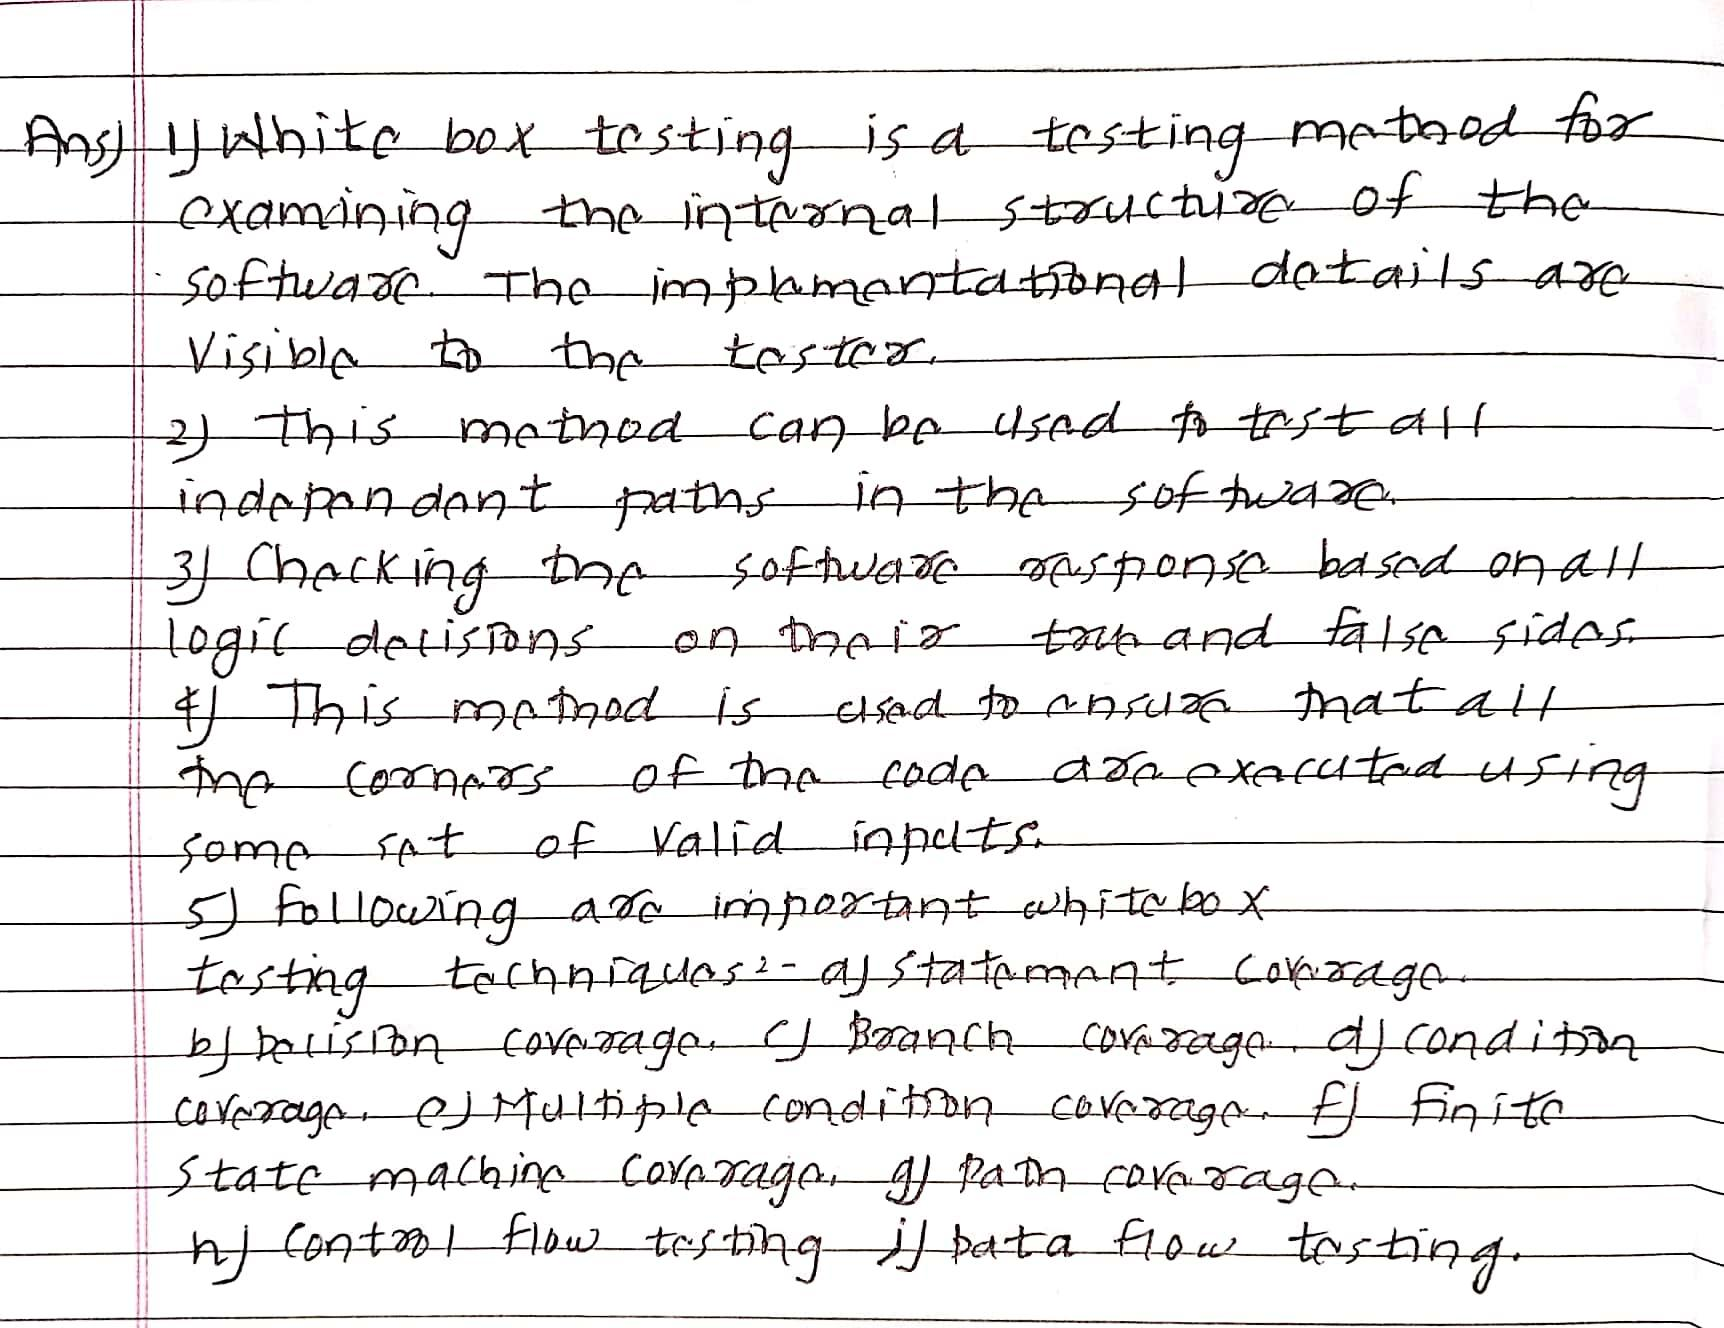 Ans) 1) White box testing is a testing method for
examining the internal structure of the
software. The implementational details are
Visible to the tester.
2) This method can be used to test all
independent paths in the software.
3) Checking the software response based on all
logic decisions on their true and false sides.
4) This method is used to ensure that all
the corners of the code are executed using
some set of valid inputs.
5) Following are important white box
testing techniques :- a) Statement Coverage.
b) Decision coverage. c) Branch coverage. d) condition
coverage. e) Multiple condition coverage. f) Finite
state machine coverage. g) Path coverage.
h) Control flow testing i) Data flow testing.